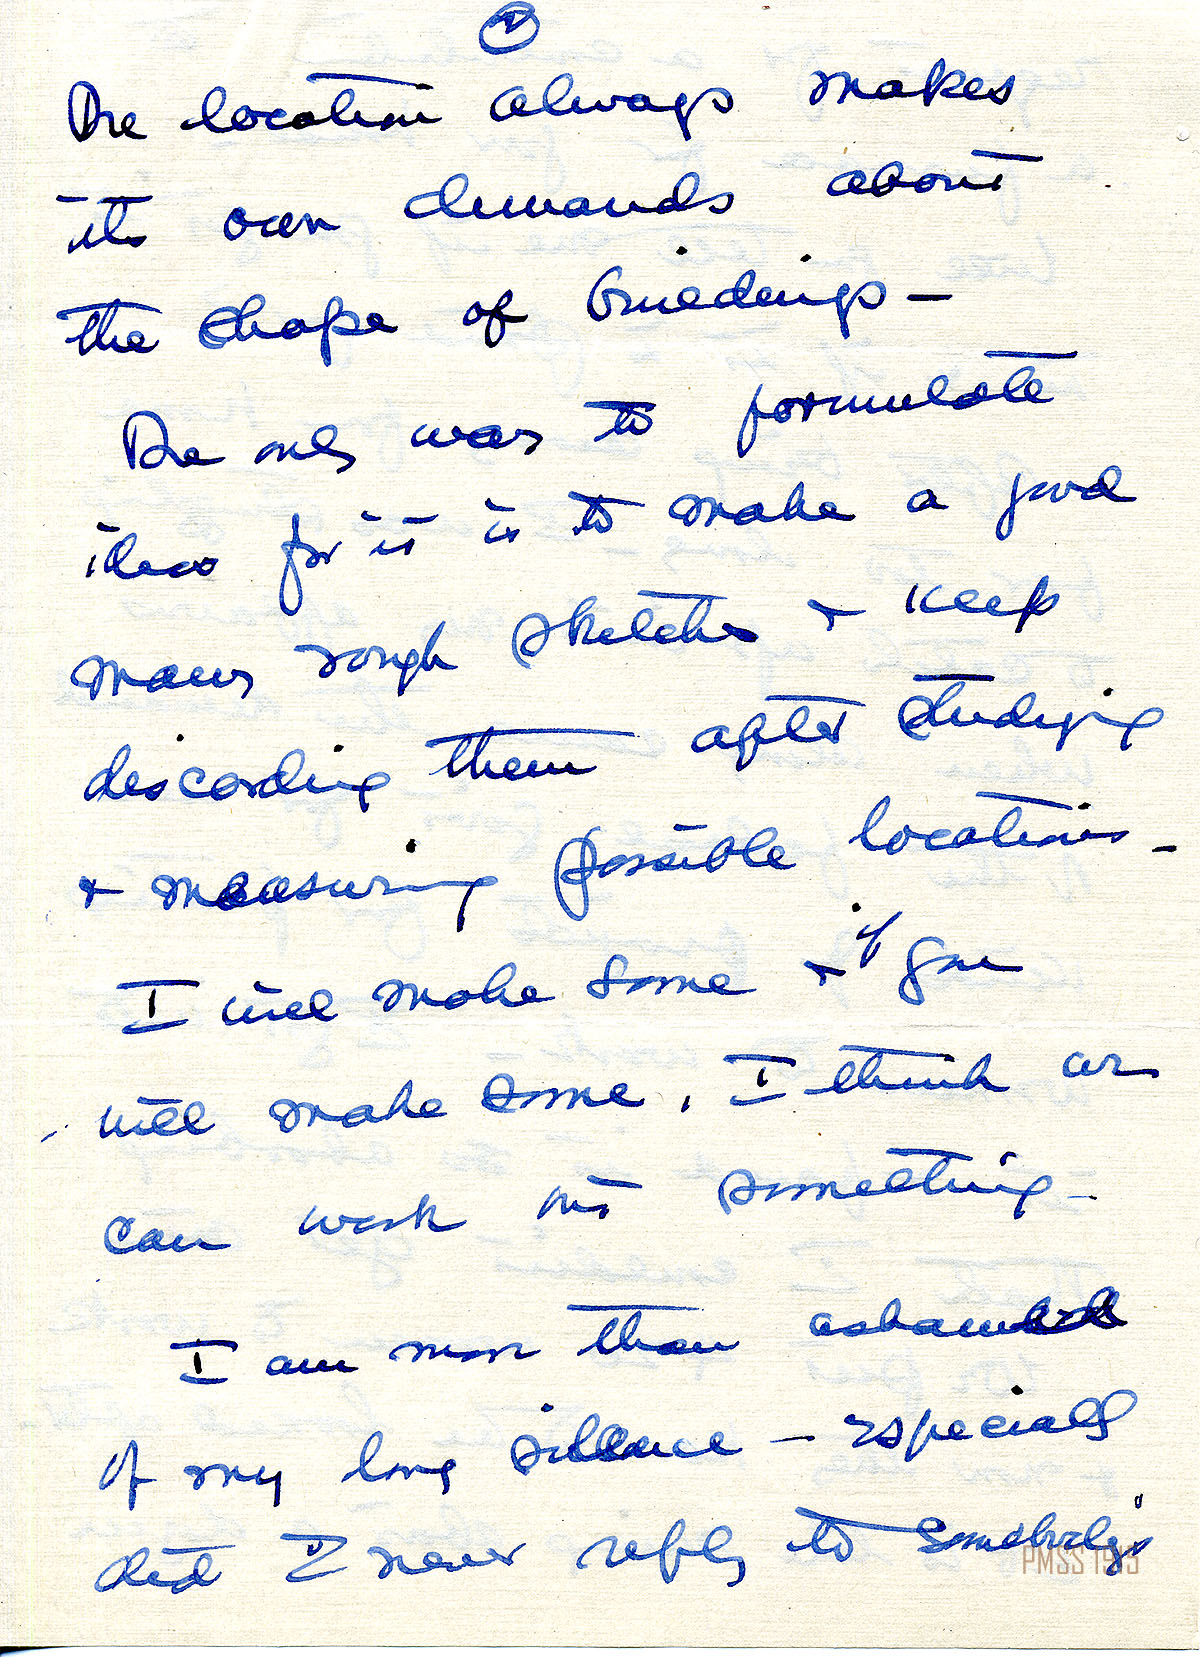 The location always makes
its own demands about
the shape of buildings —
The only way to formulate
ideas for it is to make a good
many rough sketches + keep
discarding them after studying
+ measuring possible locations —
I will make some + if you
will make some, I think we
can work out something —
I am more than ashamed
of my long silence — especially
did I never reply to somebody's
PMSS 1913